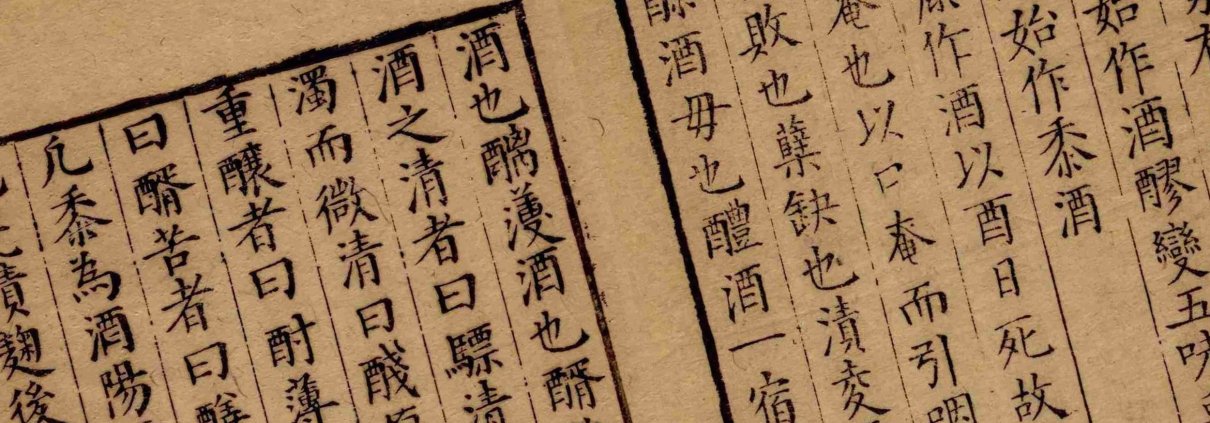 始作酒醪變五味
始作黍酒
作酒以酉日死故
奄也以口奄而引咽
敗也蘖缺也漬麥
酒毋也醴酒一宿
酒也醨薄酒也醑
酒之清者曰醥清
濁而微清曰醆
重釀者曰酎薄
曰醑苦者曰
凡黍為酒陽
漬麴後